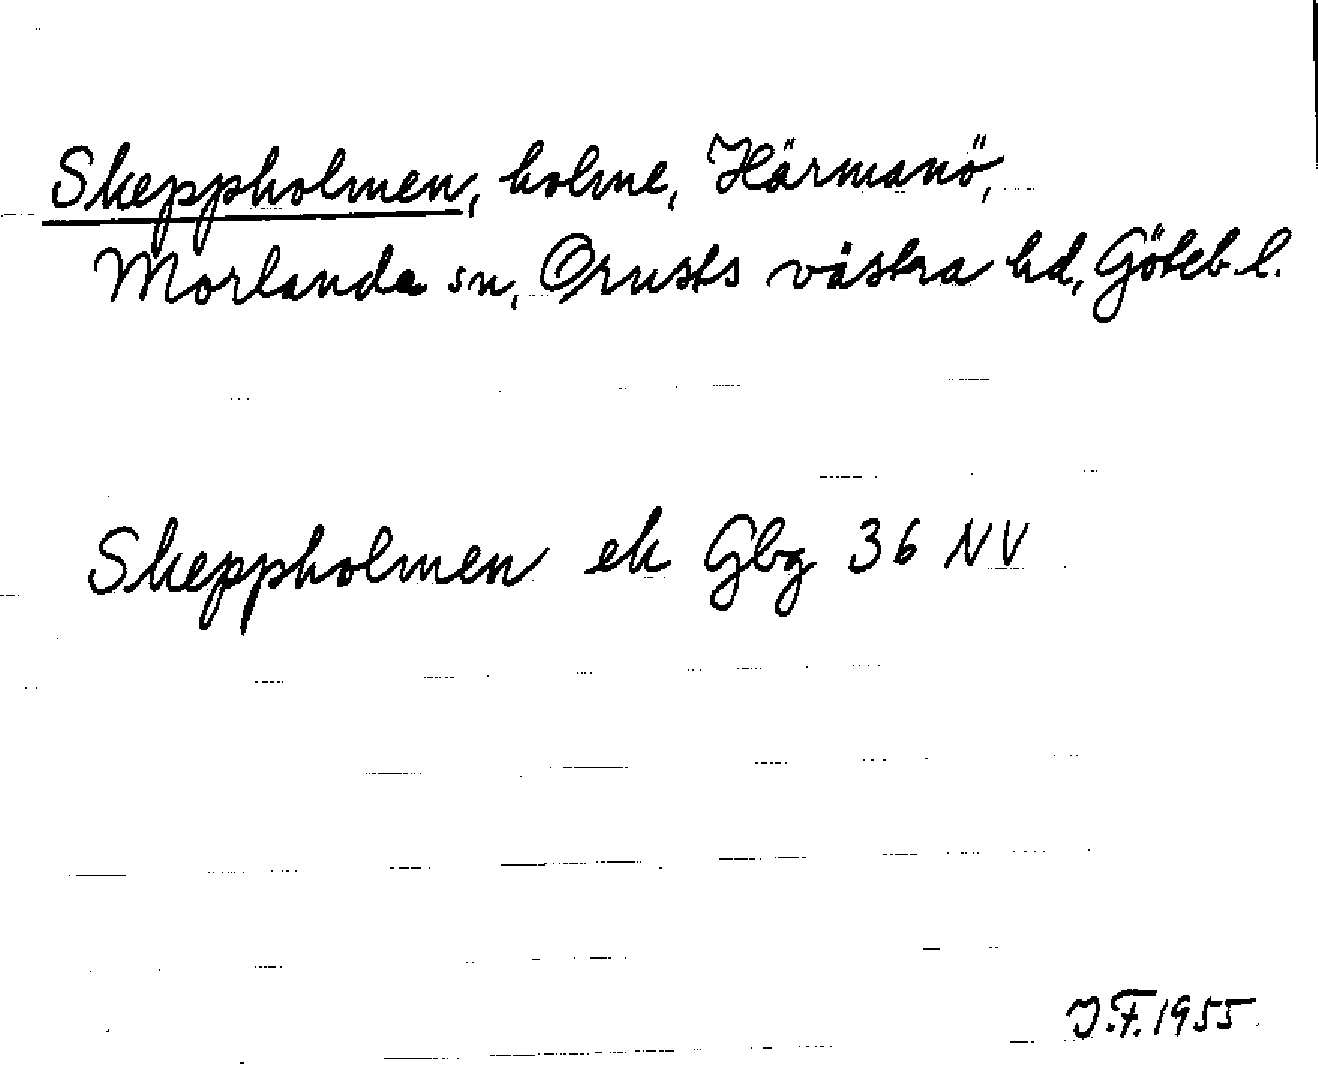 Skeppholmen, holme, Härmanö,
Morlanda sn, Orusts västra hd, Göteb. l.
Skeppholmen ek Gbg 36 NV
J.F. 1955